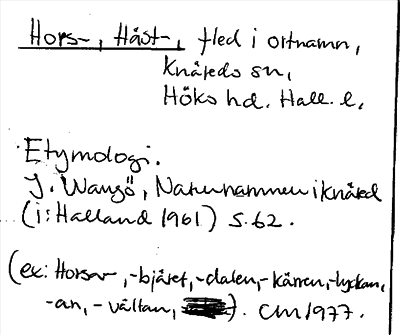 Hors-, Häst-, fled i ortnamn,
Knäreds sn,
Höks hd. Hall. l.
Etymologi.
J. Wangö, Naturnamnen i Knäred
(i: Halland 1961) S. 62.
(ex: Horsar, -bjäret, -dalen, -kärren, -lyckan,
-an, -vältan, ). CM 1977.